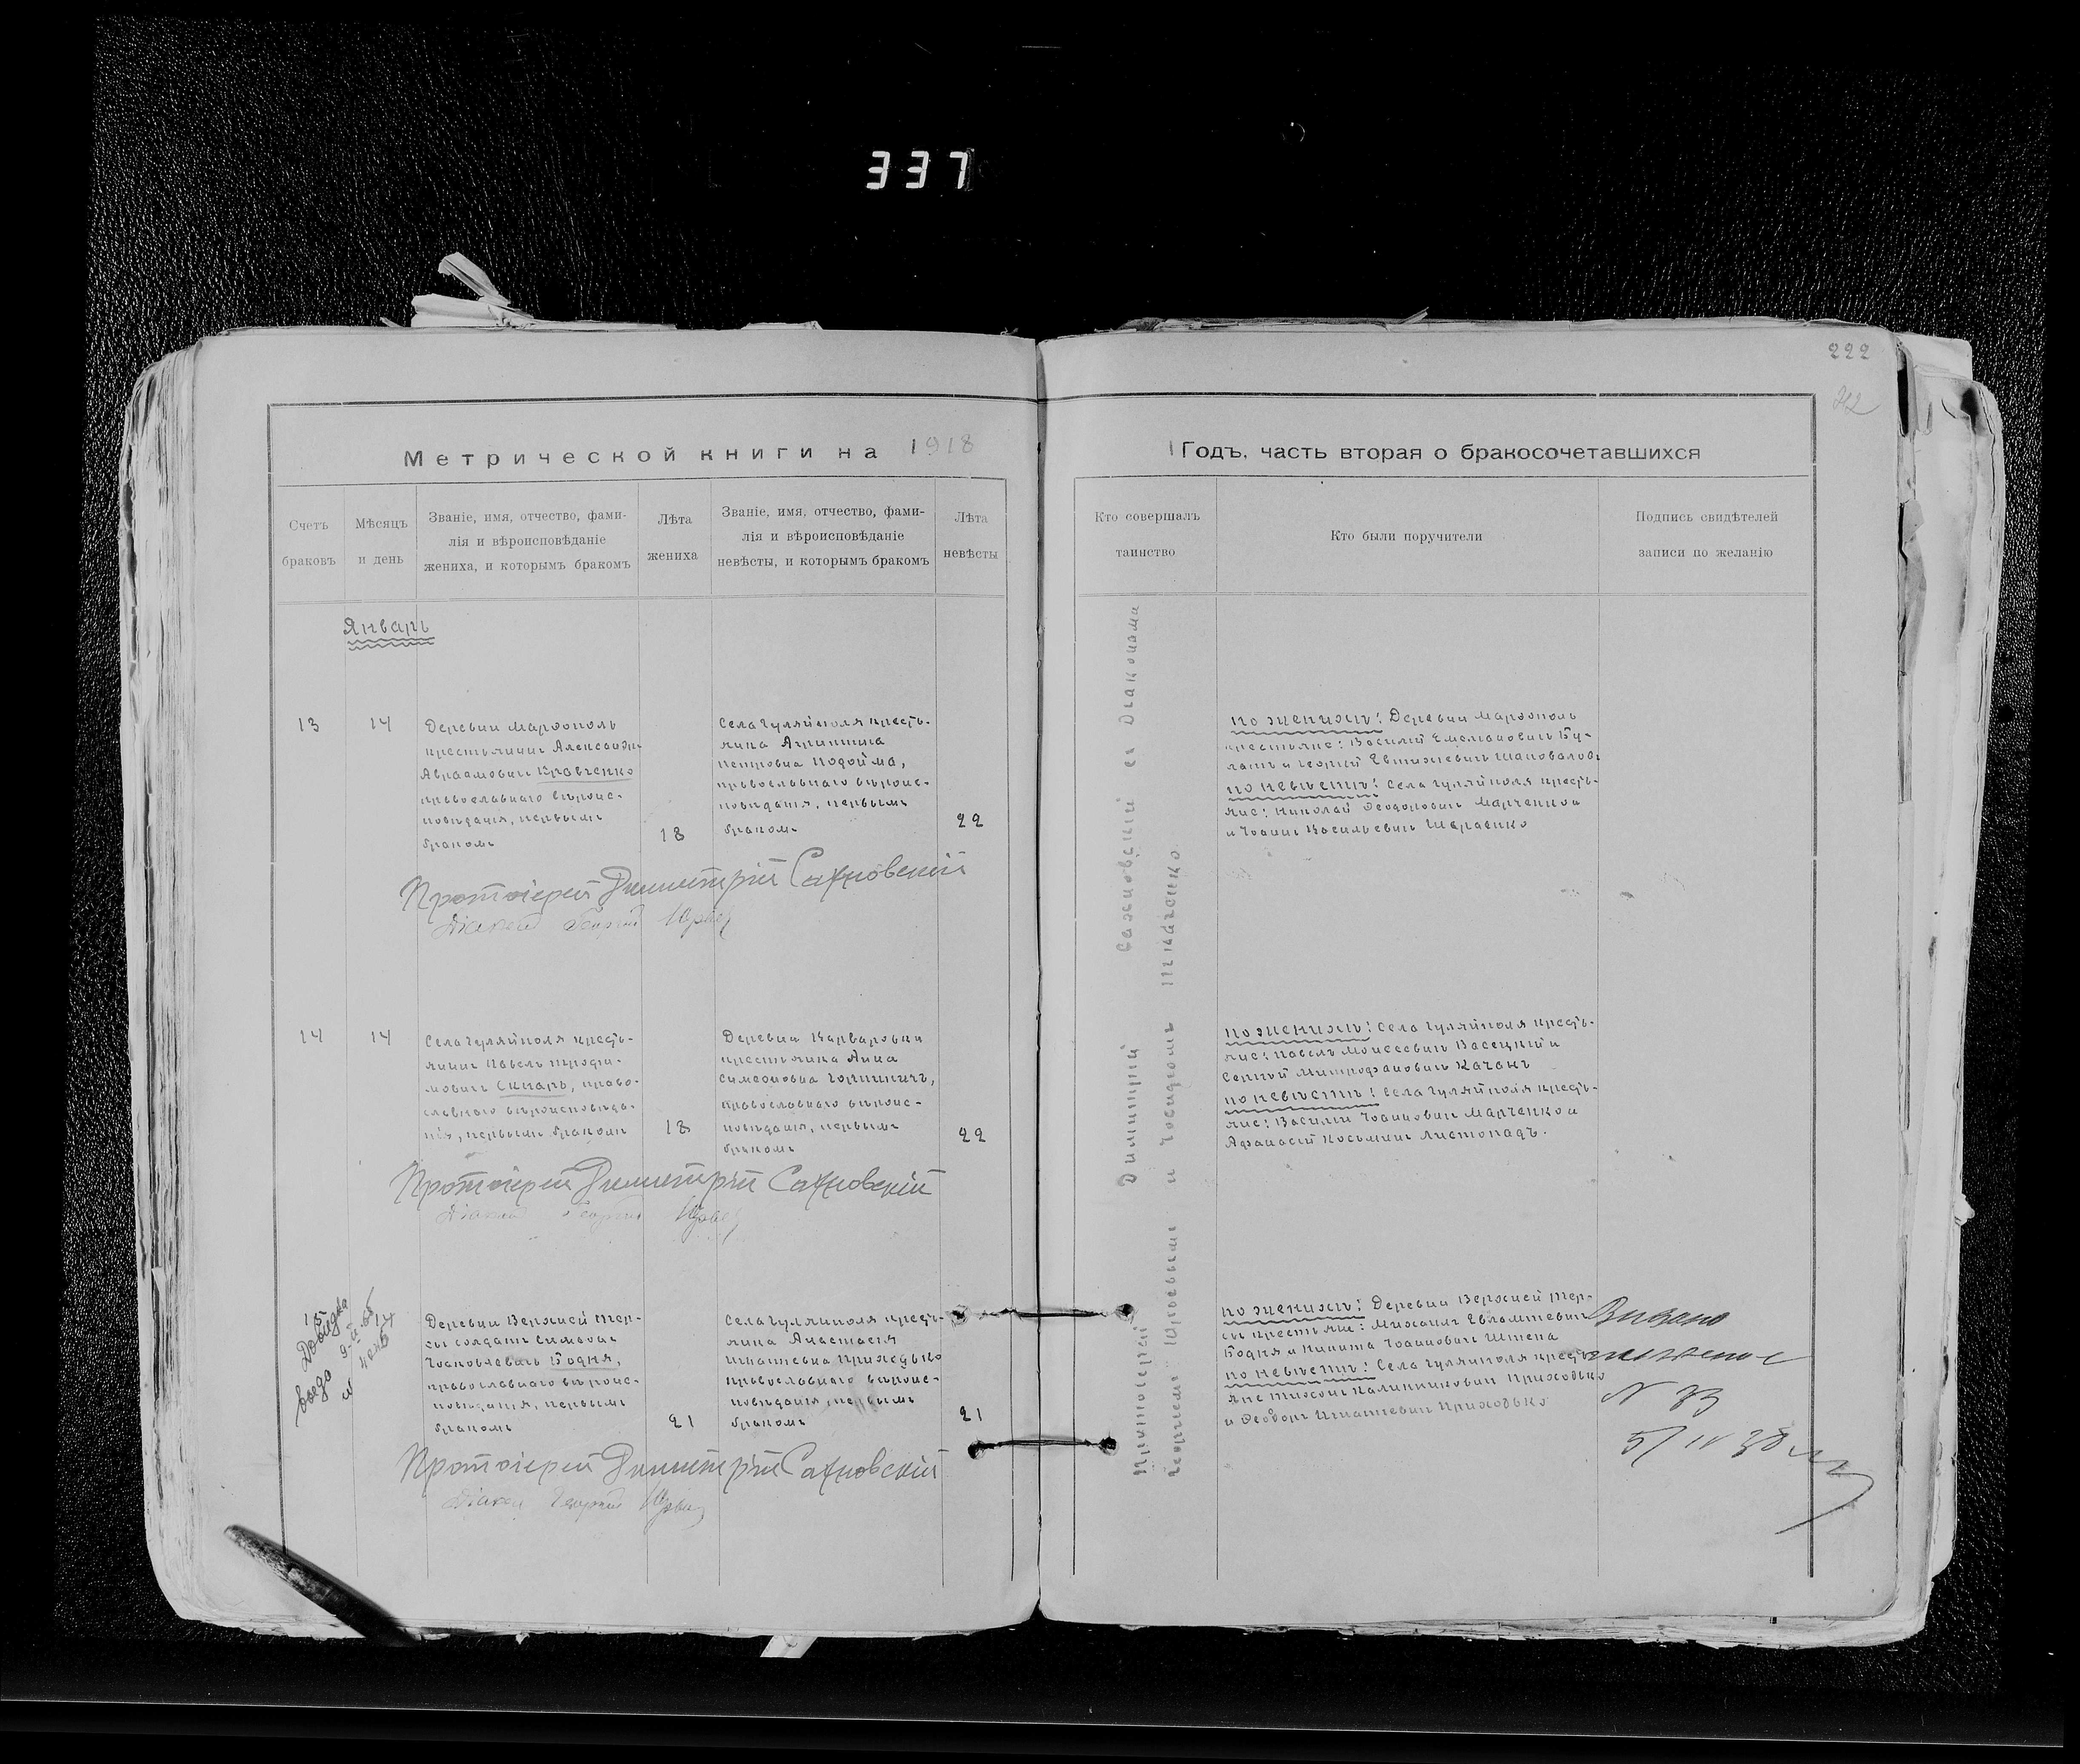 337
222
Метрической книги на 1918
Годъ, часть вторая о бракосочетавшихся
Счетъ браковъ
Мѣсяцъ и день
Званіе, имя, отчество, фами-
лія и вѣроисповѣданіе
жениха, и которымъ бракомъ
Лѣта
жениха
Званіе, имя, отчество, фами-
лія и вѣроисповѣданіе
невѣсты, и которымъ бракомъ
Лѣта
невѣсты
Кто совершалъ
таинство
Кто были поручители
Подпись свидѣтелей
записи по желанію
Январь
13
14
Деревни Марфополь
крестьянинъ Александръ
Авраамовичъ Кравченко
православнаго вѣроис-
повѣданія, первымъ
бракомъ
18
Села Гуляйполя кресть-
янка Агриппина
Петровна Подойма,
православнаго вѣроис-
повѣданія, первымъ
бракомъ
22
Протоіерей Димитрій Сахновскій
Діаконъ Георгій
по женихѣ: Деревни Марфополь
крестьяне: Василій Емельяновичъ Бу-
латъ и Георгій Евтихіевичъ Шаповаловъ
по невѣстѣ: Села Гуляйполя кресть-
яне: Николай Феодоровичъ Марченко и
и Іоаннъ Васильевичъ Шаравко
14
14
Села Гуляйполя кресть-
янинъ Павелъ Трофи-
мовичъ Скнарь, право-
славнаго вѣроисповѣда-
нія, первымъ бракомъ
18
Деревни Варваровки
крестьянка Анна
Симеоновна Горпиничъ,
православнаго вѣроис-
повѣданія, первымъ
бракомъ
22
Протоіерей Димитрій Сахновскій
Діаконъ Георгій
по женихѣ: Села Гуляйполя кресть-
яне: Павелъ Моисеевичъ Васецкій и
Сергій Митрофановичъ Качанъ
по невѣстѣ: Села Гуляйполя кресть-
яне: Василій Іоанновичъ Марченко и
Афанасій Косьмичъ Листопадъ.
15
14
Деревни Верхней Тер-
сы солдатъ Симеонъ
Іаковлевичъ Бодня,
православнаго вѣроис-
повѣданія, первымъ
бракомъ
21
Села Гуляйполя кресть-
янка Анастасія
Игнатіевна Приходько
православнаго вѣроис-
повѣданія, первымъ
бракомъ
21
Протоіерей Димитрій Сахновскій
Діаконъ Георгій
по женихѣ: Деревни Верхней Тер-
сы крестьяне: Михаилъ Евлампіевичъ
Бодня и Никита Іоанновичъ Штепа
по невѣстѣ: Села Гуляйполя кресть-
яне Тихонъ Калинниковичъ Приходько
и Феодоръ Игнатіевичъ Приходько
Протоіерей Димитрій Сахновскій съ Діакономъ
Георгіемъ Юрьевымъ и Ткаченко